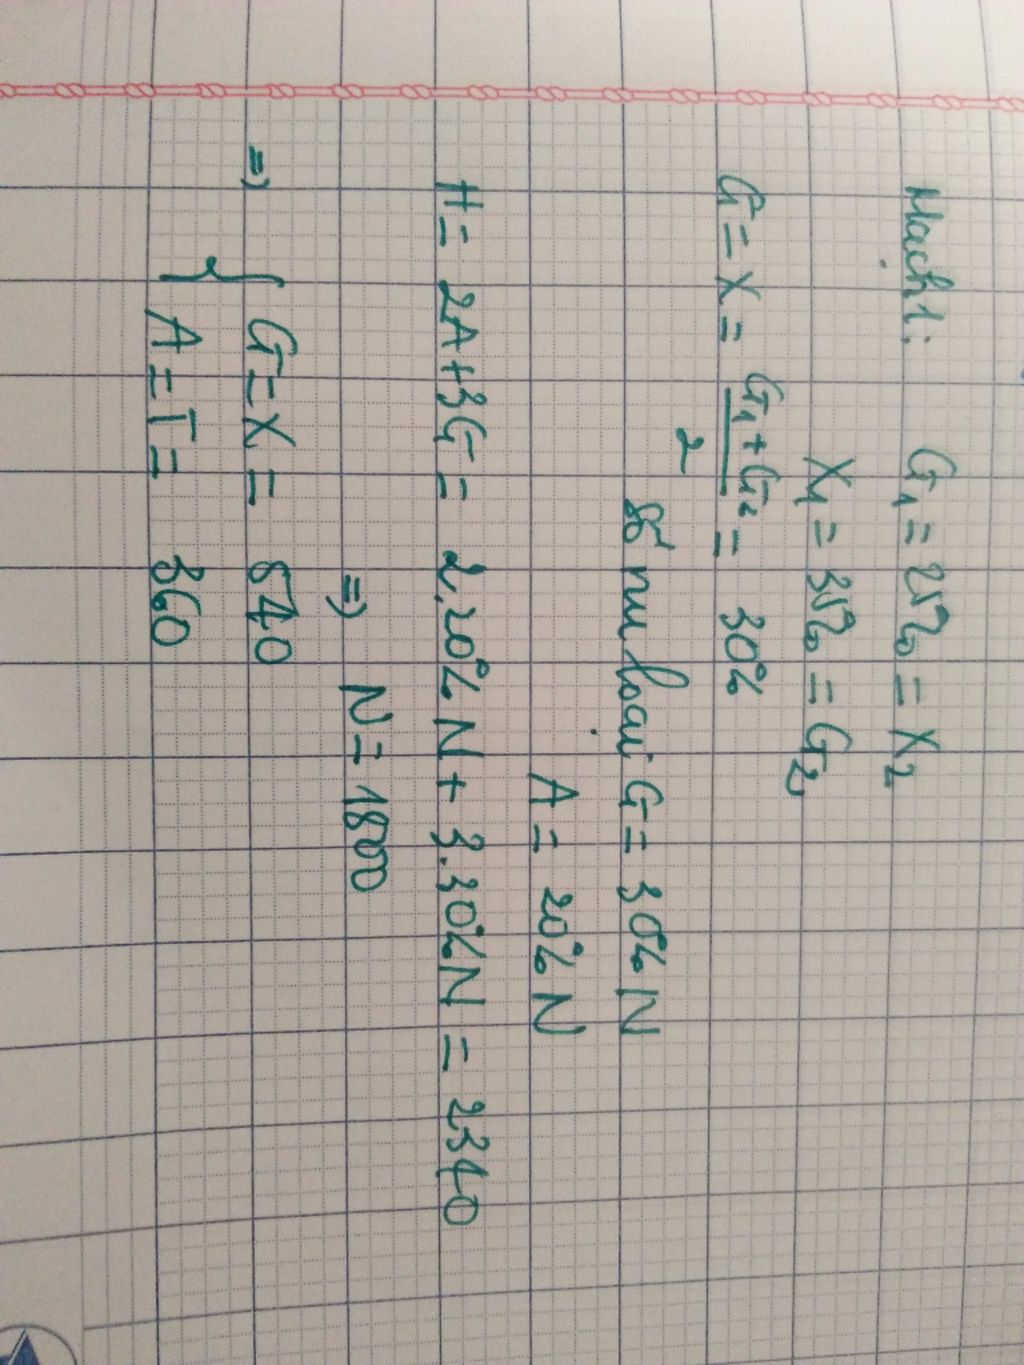 Mạch 1: G1 = 25% = X2
X1 = 35% = G2
G = X = (G1 + G2)/2 = 30%
số nu loại G = 30% N
A = 20% N
H = 2A + 3G = 2.20% N + 3.30% N = 2340
=> N = 1800
=> { G = X = 540
A = T = 360